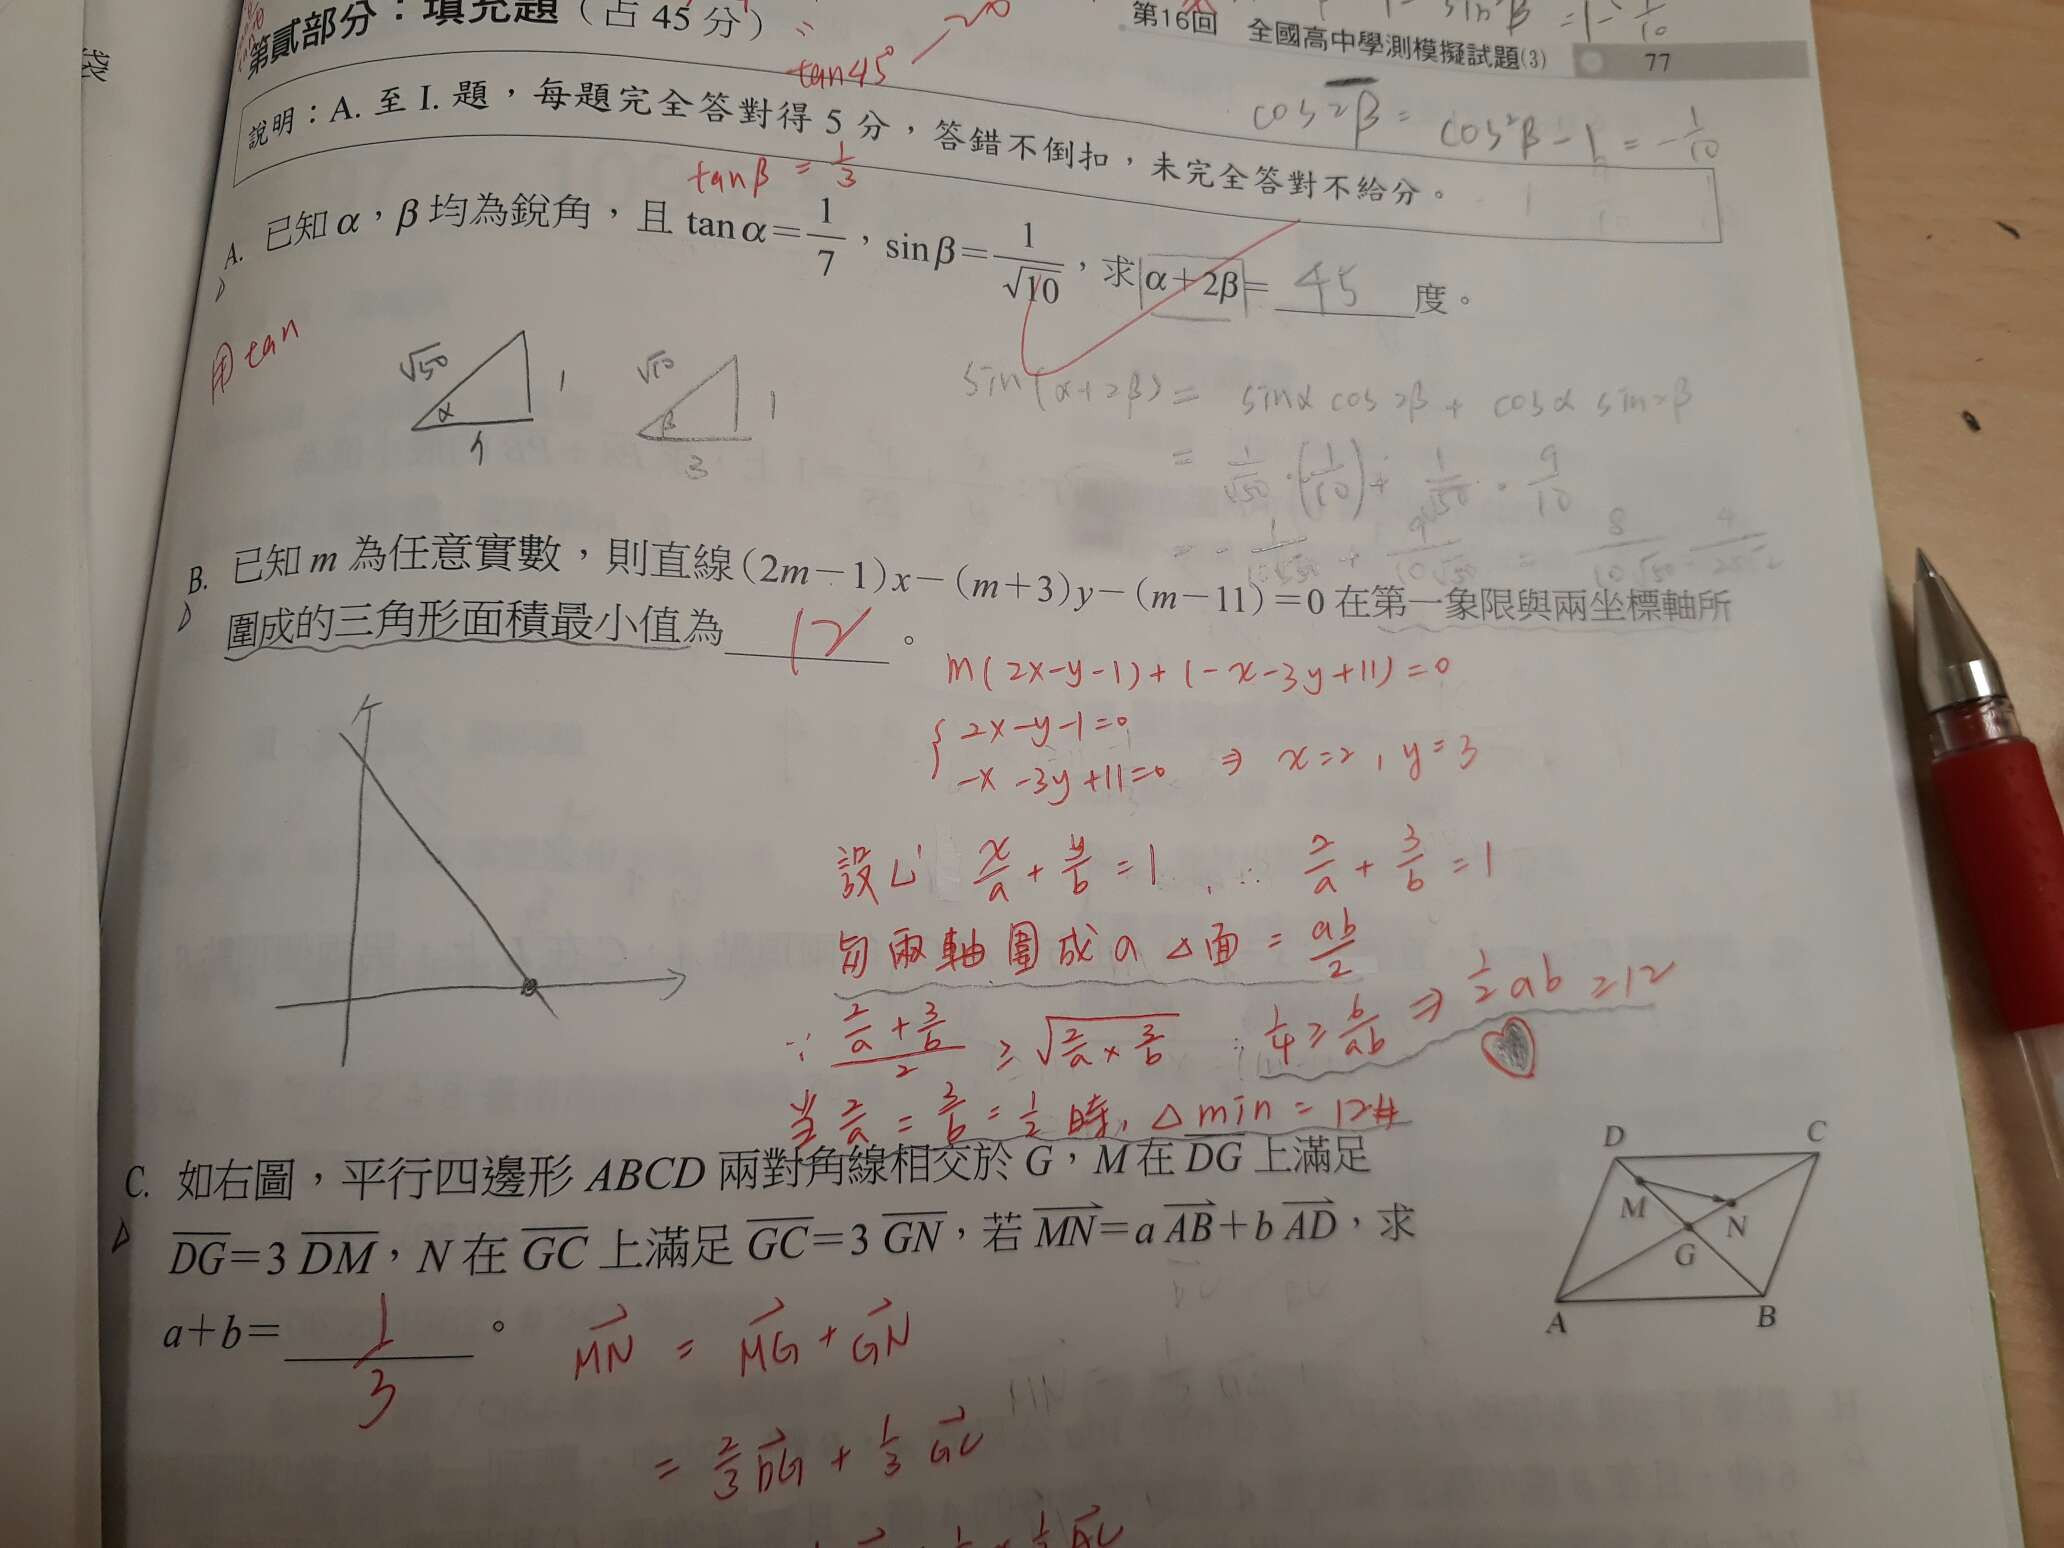 第貳部分：填充題（占 45 分）
第16回 全國高中學測模擬試題(3) 77
tan45°
20
cos2β = cos²β-1 = -1/10
說明：A. 至 I. 題，每題完全答對得 5 分，答錯不倒扣，未完全答對不給分。
tanβ = 1/3
A. 已知 α，β 均為銳角，且 tan α=1/7，sin β=1/√10，求|α+2β|= 45 度。
用 tan
√50 1 α 7
√10 1 β 3
sin(α+2β) = sinα cos2β + cosα sin2β
= 1/√50 · (-1/10) + 1/√50 · 9/10
= -1/10√50 + 9/10√50 = 8/10√50
B. 已知 m 為任意實數，則直線(2m－1)x－(m＋3)y－(m－11)＝0 在第一象限與兩坐標軸所
圍成的三角形面積最小值為 12 。
m(2x-y-1)+(-x-3y+11)=0
{ 2x-y-1=0
-x-3y+11=0 ⇒ x=2, y=3
設L: x/a + y/b = 1 ∴ 2/a + 3/b = 1
與兩軸圍成a △面 = ab/2
∵ (2/a + 3/b)/2 ≥ √(2/a × 3/b) ∴ 1/4 ≥ 6/ab ⇒ 1/2 ab ≥ 12
当 2/a = 3/b = 1/2 時, △min = 12#
C. 如右圖，平行四邊形 ABCD 兩對角線相交於 G，M 在 DG 上滿足
DG=3 DM，N 在 GC 上滿足 GC=3 GN，若 MN=a AB+b AD，求
a+b= 1/3 。
D C
M N
G
A B
MN = MG + GN
= 2/3 DG + 1/3 GC